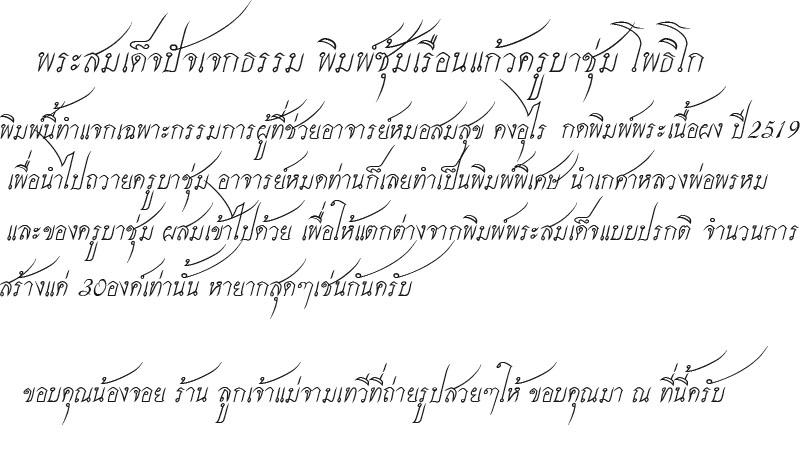 พระสมเด็จปัจเจกธรรม พิมพ์ซุ้มเรือนแก้วครูบาชุ่ม โพธิโก
พิมพ์นี้ทำแจกเฉพาะกรรมการผู้ที่ช่วยอาจารย์หมอสมสุข คงอุไร กดพิมพ์พระเนื้อผง ปี2519
เพื่อนำไปถวายครูบาชุ่ม อาจารย์หมดท่านก็เลยทำเป็นพิมพ์พิเศษ นำเกศาหลวงพ่อพรหม
และของครูบาชุ่ม ผสมเข้าไปด้วย เพื่อให้แตกต่างจากพิมพ์พระสมเด็จแบบปรกติ จำนวนการ
สร้างแค่ 30องค์เท่านั้น หายากสุดๆเช่นกันครับ
ขอบคุณน้องจอย ร้าน ลูกเจ้าแม่จามเทวีที่ถ่ายรูปสวยๆให้ ขอบคุณมา ณ ที่นี้ครับ